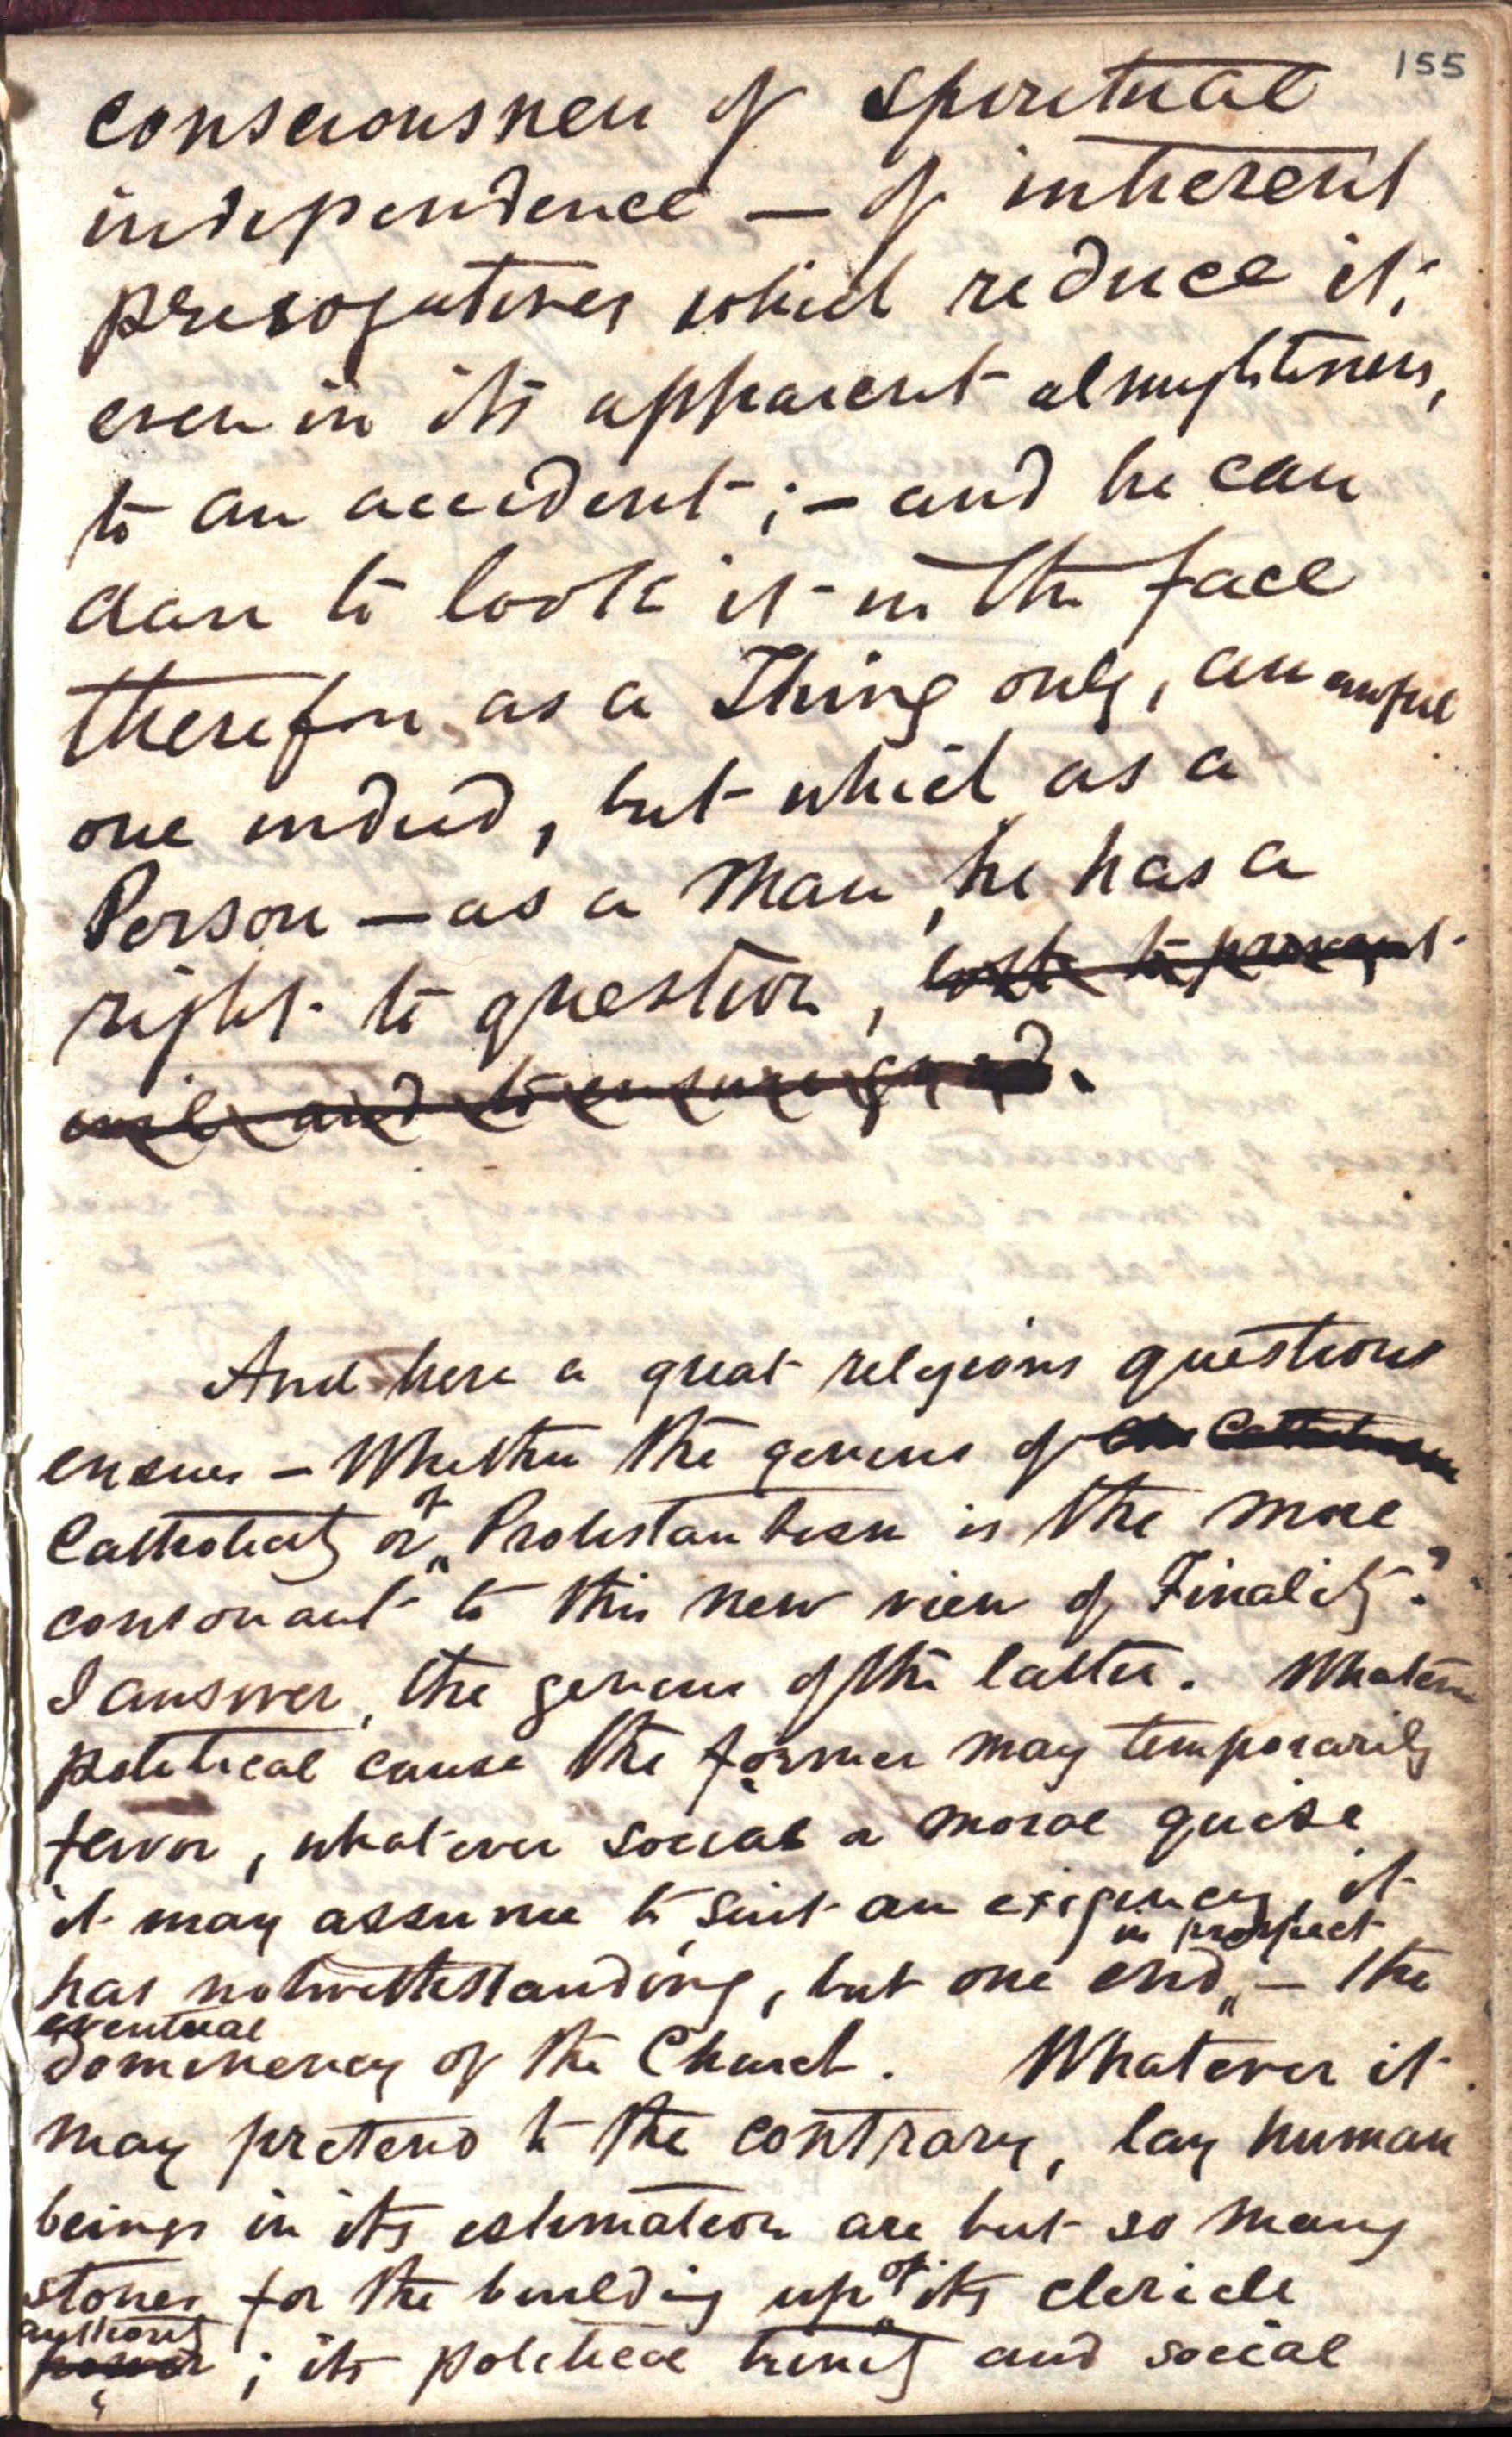 155
consciousness of spiritual
independence — of inherent
prerogatives which reduce it,
even in its apparent almightiness,
to an accident ; – and he can
dare to look it in the face
therefore as a Thing only, an awful
one indeed, but which as a
Person — as a Man, he has a
right to question, both to prevent
evil and to ensure good.
And here a great religious question
ensues – Whether the genius of
Catholicity or of Protestantism is the more
consonant to this new view of Finality?
I answer, the genius of the latter. Whatever
political cause the former may temporarily
favor, whatever social or moral guise
it may assume to suit an exigency, it
has notwithstanding, but one end in prospect – the
eventual
dominency of the Church. Whatever it
may pretend to the contrary, lay human
beings in its estimation are but so many
stones for the building up of its clerical
authority power ; its political and social